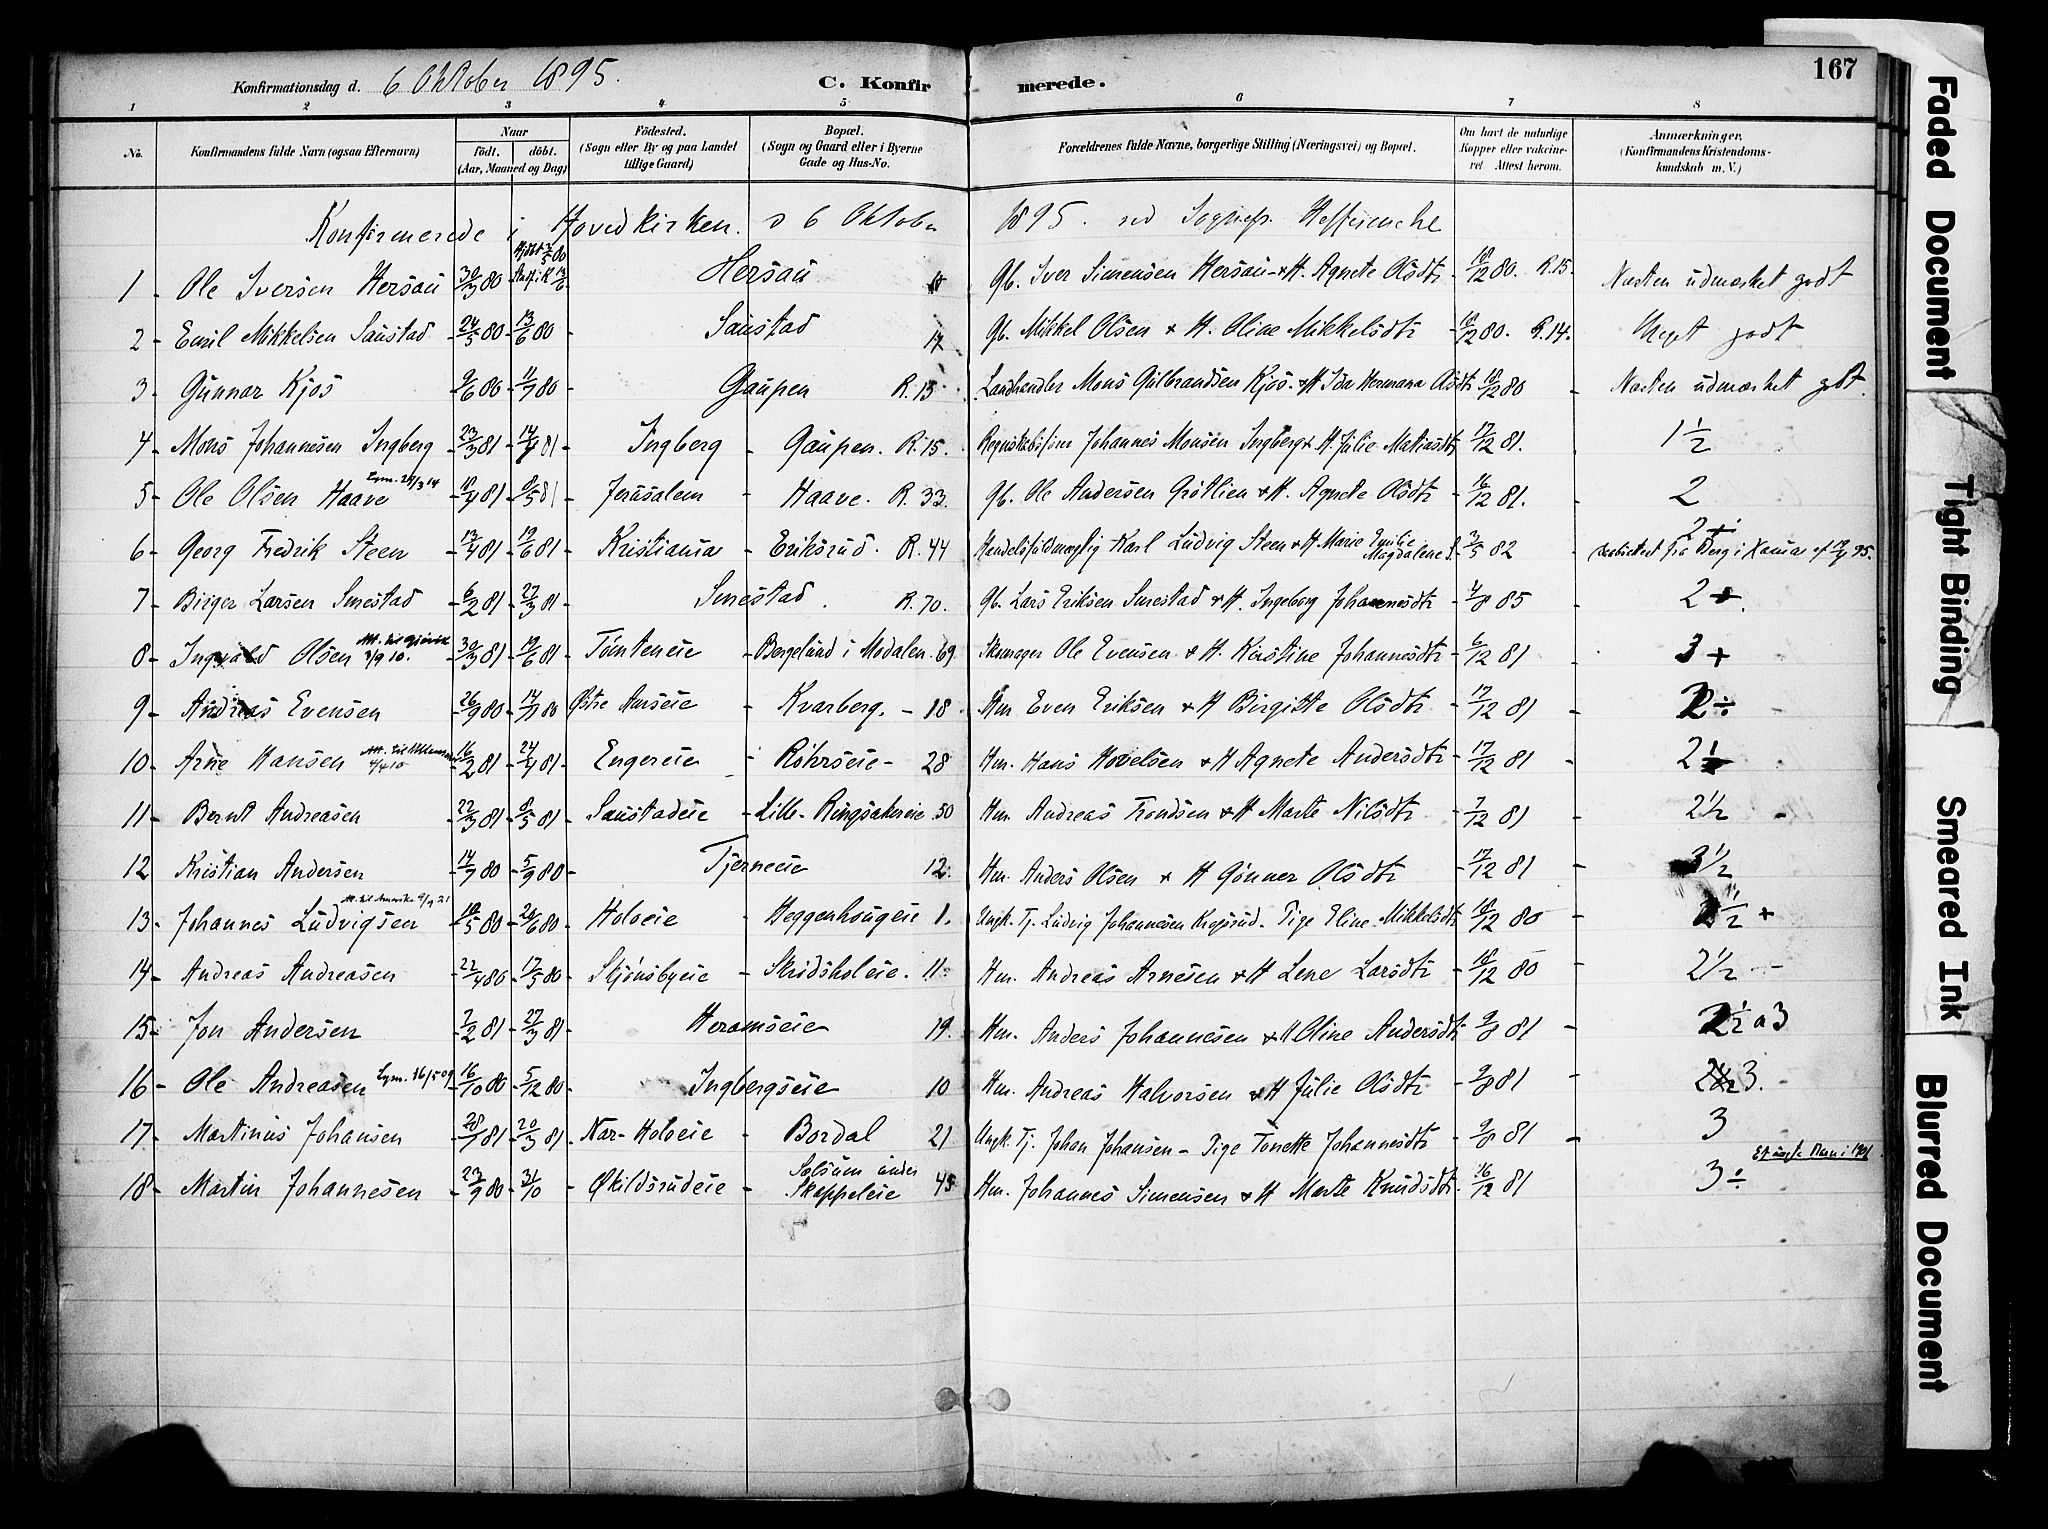 Konfirmationsdag d. 6 Oktober 1895. C. Konfirmerede. 167
1 2 3 4 5 6 7 8
No. Konfirmandens fulde Navn (ogsaa Efternavn) Naar födt. döbt. (Aar, Maaned og Dag) Födested. (Sogn eller By og paa Landet tillige Gaard) Bopæl. (Sogn og Gaard eller i Byerne Gade og Hus-No. Forældrenes fulde Navne, borgerlige Stilling (Næringsvei) og Bopæl. Om havt de naturlige Kopper eller vaccineret Attest herom. Anmærkninger. (Konfirmandens Kristendomskundskab m. V.)
Konfirmerede i Hovedkirken d 6 Oktober 1895. ved Sognepr.
1 - Ole Iversen Hersau 30/3 80 Hersau Gb. Iver Simensen Hersau & H. Agnete Olsdtr 18/12 80. R. 15. Næsten udmærket godt
2 - Emil Mikkelsen Saustad 24/5 80 13/6 80 Saustad 17 Gb. Mikkel Olsen & H. Oline Mikkelsdtr 18/12 80. R. 14. Meget godt
3 - Gunnar Kjos 9/6 80 11/7 80 Gaupen R. 15 Landhandler Mons Gulbrandsen Kjos & H Ida Hermana Olsdtr 18/12 80 - Næsten udmærket godt.
4 - Mons Johannesen Ingberg 23/3 81 17/4 81 Ingberg - Gaupen. R. 15. Johannes Monsen Ingberg & H. Julie Matiasdtr 17/12 81. 1 1/2
5 - Ole Olsen Haave 18/4 81 8/5 81 Jerusalem - Haave. R. 33. Gb. Ole Andersen Gröttlien & H. Agnete Olsdtr 16/12 81. 2
6 - Georg Fredrik Steen 13/4 81 19/6 81 Kristiania - Eriksrud. R. 44 Handelsfuldmægtig Karl Ludvig Steen & H Marie Emilie Magdalene S. 3/5 82 2 + fra Berg i Hamar
7 - Birger Larsen Smestad 6/2 81 27/3 81 Smestad. R. 70. Gb. Lars Eriksen Smestad & H. Ingeborg Johannesdtr 4/8 85 2
8 - Ingvald Olsen Att. til Gjövik 3/9 10. 30/3 81 19/6 81 Tömteneie - Bergelund i Modalen 69 Skomager Ole Evensen & H. Kirstine Johannesdtr 6/12 81 3 +
9 - Andreas Evensen 26/9 80 14/11 80 Östre Aurseie - Kvarberg. - 18 Hm Even Eriksen & H Birgitte Olsdtr 17/12 81 - 2 ÷
10 - Arne Hansen 16/2 81 24/4 81 Engereie - Röhrseie - 28 Hm. Hans Hovelsen & H Agnete Andersdtr 17/12 81 2 1/2
11 - Bernt Andreasen 22/3 81 8/5 81 Saustadeie - Lille-Ringsakereie 50 Hm. Andreas Trondsen & H Marte Nilsdtr 7/12 81 2 1/2
12 - Kristian Andersen 14/7 80 5/9 80 Tjerneeie 12 Hm. Anders Olsen & H Gönner Olsdtr 17/12 81 3 1/2
13. Johannes Ludvigsen Att. til Amerika 18/5 80 20/6 80 Holoeie - Heggenhougeie 1. Ungk. Tj. Ludvig Johannesen Krogsrud. Pige Eline Mikkelsdtr 18/12 80 2 1/2 +
14 - Andreas Andreasen 22/4 80 17/5 80 Skjönsbyeie - Skridsholeie. 11 Hm. Andreas Arnesen & H Lene Larsdtr 18/12 80 2 1/2
15 - Jon Andersen 7/2 81 27/3 81 Heramseie 19. Hm. Anders Johannesen & H Oline Andersdtr 9/8 81 2 1/2 a 3
16 - Ole Andreasen Lysn. 16/5 09 16/10 80 5/12 80 Ingbergseie 10 Hm. Andreas Halvorsen & H Julie Olsdtr 9/8 81 3.
17. - Martinus Johansen 28/1 81 20/3 81 Nor-Holoeie - Bordal 21 Ungk. Tj. Johan Johansen - Pige Tonette Johannesdtr 9/8 81 3
18 - Martin Johannesen 23/9 80 31/10 Ökildsrudeie Solsum under Skoppeleie 45 Hm. Johannes Simensen & H Marte Knudsdtr. 16/12 81 3 ÷
Faded Document
Tight Binding
Smeared Ink
Blurred Document